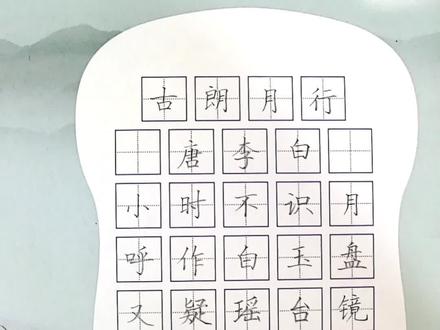 古朗月行
唐李白
小时不识月
呼作白玉盘
又疑瑶台镜